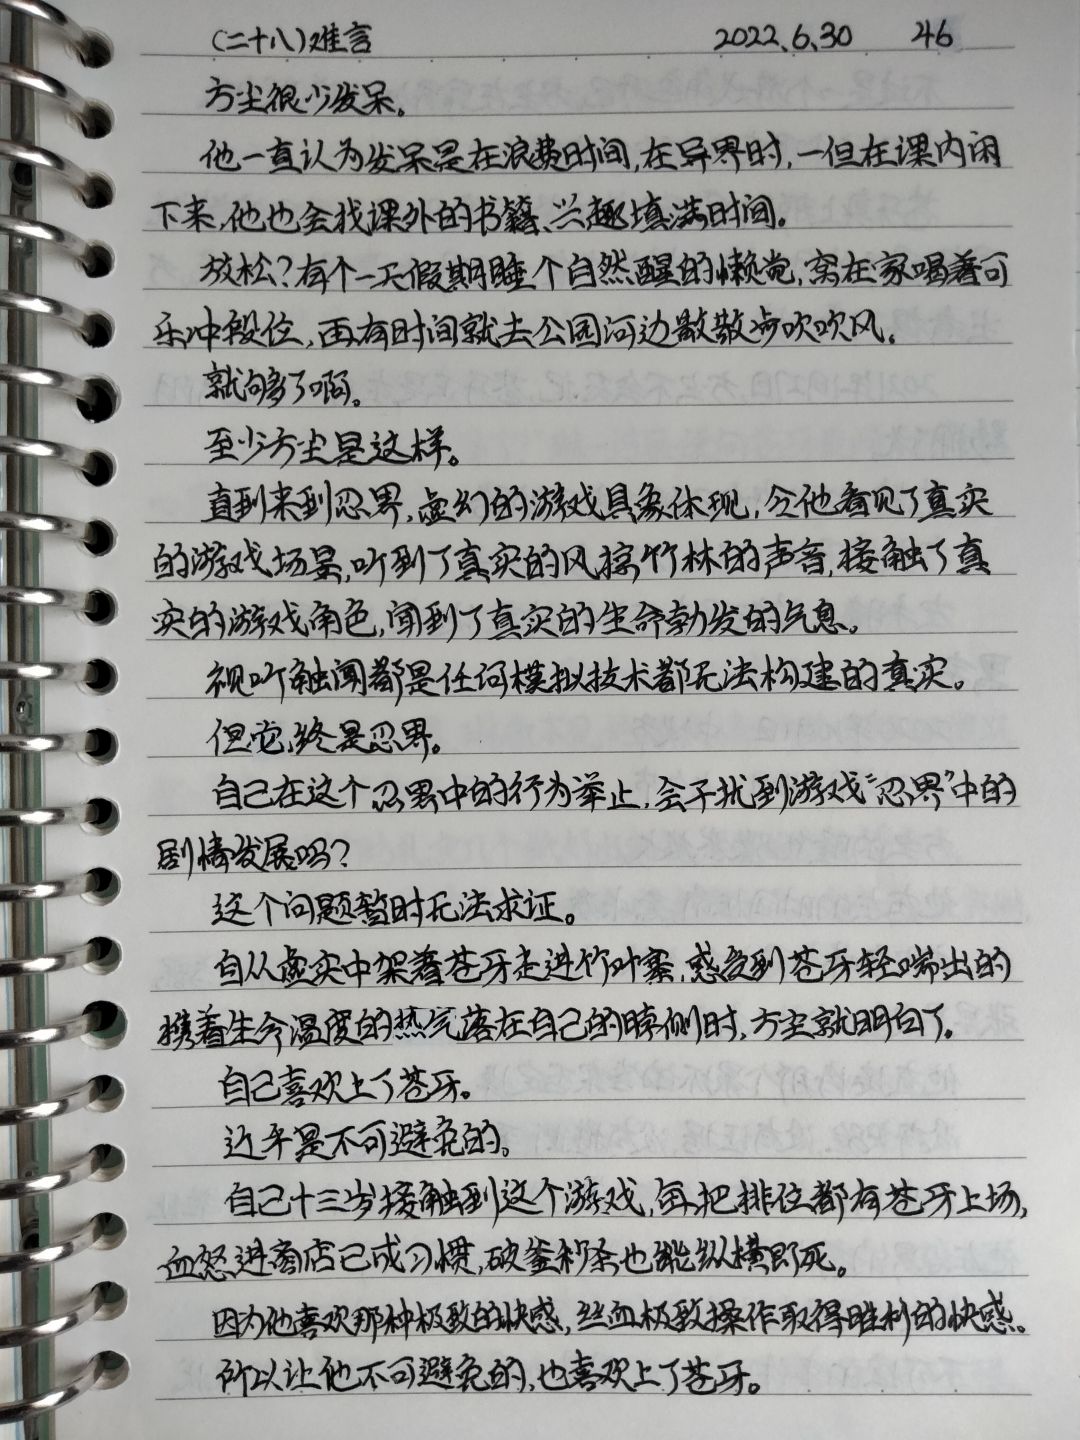 (二十八)难言 2022.6.30 46
方尘很少发呆。
他一直认为发呆是在浪费时间,在异界时,一但在课内闲
下来,他也会找课外的书籍、兴趣填满时间。
放松?有个一天假期睡个自然醒的懒觉,窝在家喝着可
乐冲段位,再有时间就去公园河边散散步吹吹风。
就够了啊。
至少方尘是这样。
直到来到忍界,虚幻的游戏具象体现,令他看见了真实
的游戏场景,听到了真实的风掠竹林的声音,接触了真
实的游戏角色,闻到了真实的生命勃发的气息。
视听触闻都是任何模拟技术都无法构建的真实。
但它,终是忍界。
自己在这个忍界中的行为举止,会干扰到游戏“忍界”中的
剧情发展吗?
这个问题暂时无法求证。
自从虚实中架着苍牙走进竹叶寨,感受到苍牙轻喘出的
携着生命温度的热气落在自己的脖侧时,方尘就明白了。
自己喜欢上了苍牙。
近乎是不可避免的。
自己十三岁接触到这个游戏,每把排位都有苍牙上场,
血怒进商店已成习惯,破釜秒杀也能纵横即死。
因为他喜欢那种极致的快感,丝血极致操作取得胜利的快感。
所以让他不可避免的,也喜欢上了苍牙。